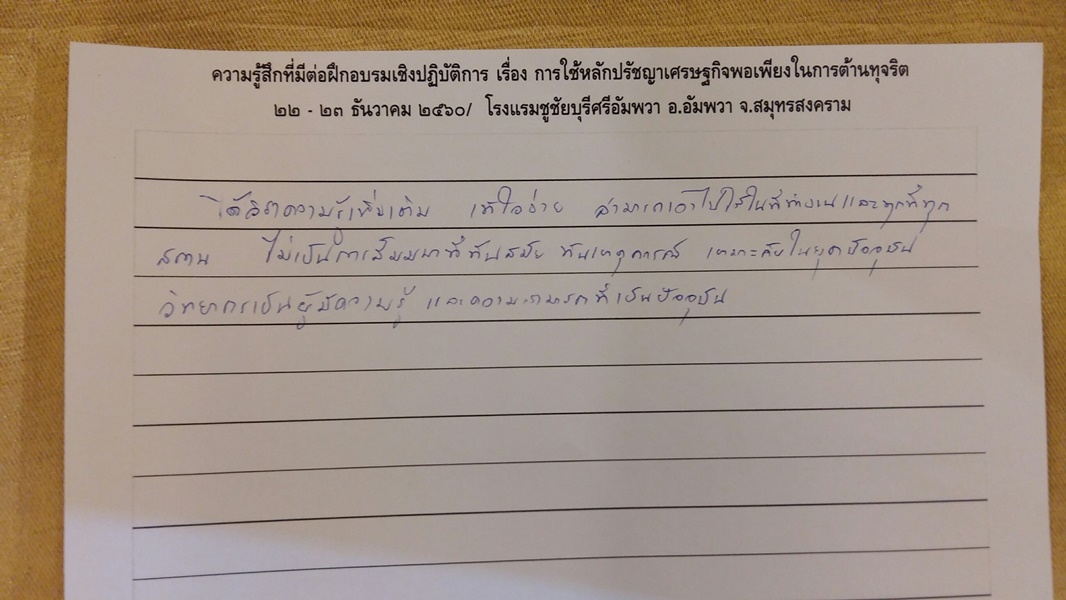 ความรู้สึกที่มีต่อฝึกอบรมเชิงปฏิบัติการ เรื่อง การใช้หลักปรัชญาเศรษฐกิจพอเพียงในการต้านทุจริต
๒๒ - ๒๓ ธันวาคม ๒๕๖๐/ โรงแรมชูชัยบุรีศรีอัมพวา อ.อัมพวา จ.สมุทรสงคราม
ได้ความรู้เพิ่มเติม เข้าใจง่าย สามารถเอาไปใช้ในที่ทำงานและทุกที่ทุก
สถาน เป็นการสัมมนาที่ทันสมัย ทันเหตุการณ์ เหมาะกับในยุคปัจจุบัน
วิทยากรเป็นผู้มีความรู้ และความสามารถที่เป็นปัจจุบัน